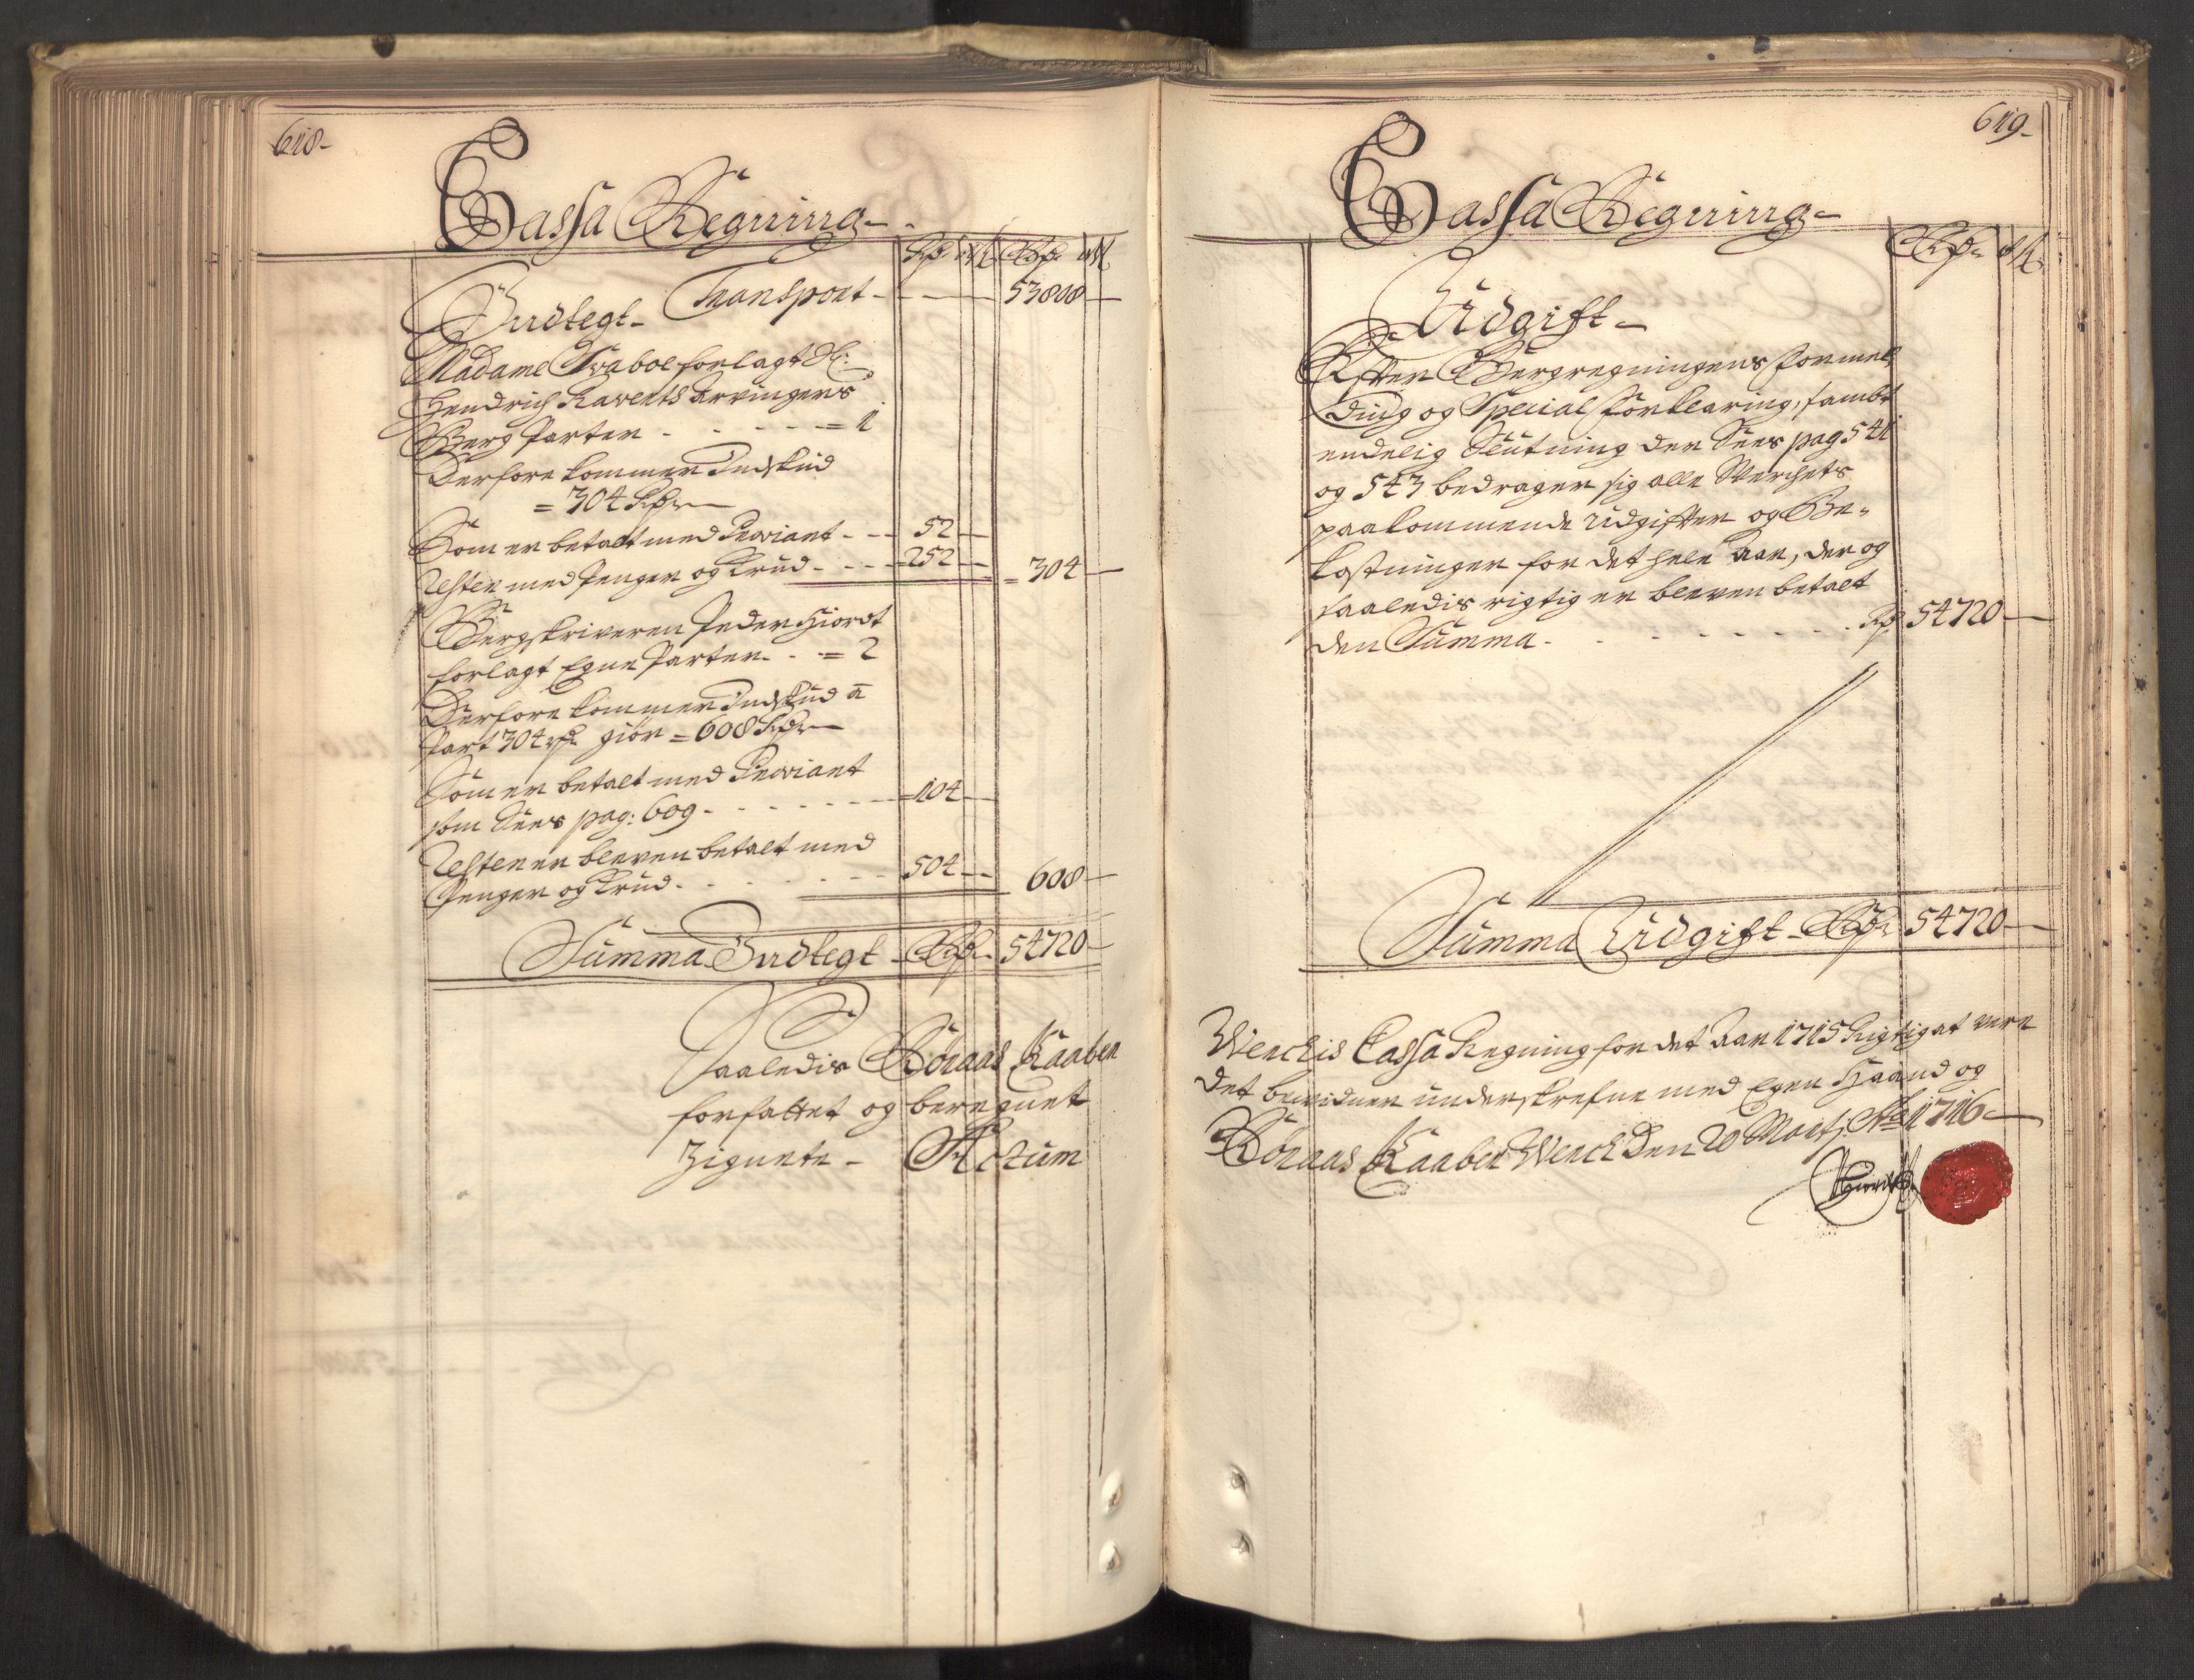 618-
Cassa Regning-
Rdr mk Rdr mk
Transport - 53808
Indtegt-
Madame Svaboe forlagt Sl:
Hendrich Kavents Arvingers
Berg Parter - - - - = 1
Derfore kommer Indskud
= 304 Rdr
Som er betalt med Proviant - - 52
Resten med Penger og Krud - - = 252 = 304
Bergskriveren Peder Hiordt
forlagt Egne Parter - - = 2
Derfore kommer Indskud a
Part 304 rdr giør = 608 Rdr
Som er betalt med Proviant
som Sees pag: 609 - - - - = 104
Resten er bleven betalt med
Penger og Krud - - - - 504 608
Summa Indtegt - Rdr - 54720
Saaledis Röraas Kaaber
forfattet og beregnet
Zignete - Actum
619-
Cassa Regning-
Rdr mk
Udgift-
Efter Bergregningens formel
ding og Special forklaring, sambt
endelig Slutning der Sees pag 541
og 543 bedrager sig alle Werchets
paakommende Udgifter og Be-
kostninger for det hele Aar, der og
saaledis rigtig er bleven betalt
den Summa - - - - Rdr 54720
Summa Udgift - Rdr 54720
Werckis Cassa Regning for det Aar 1715 Rigtig at were
det bevidner underskrefne med Egen Haand og
Röraas Kaaber Werck Den 20 Martj Ao 1716
PHiordt